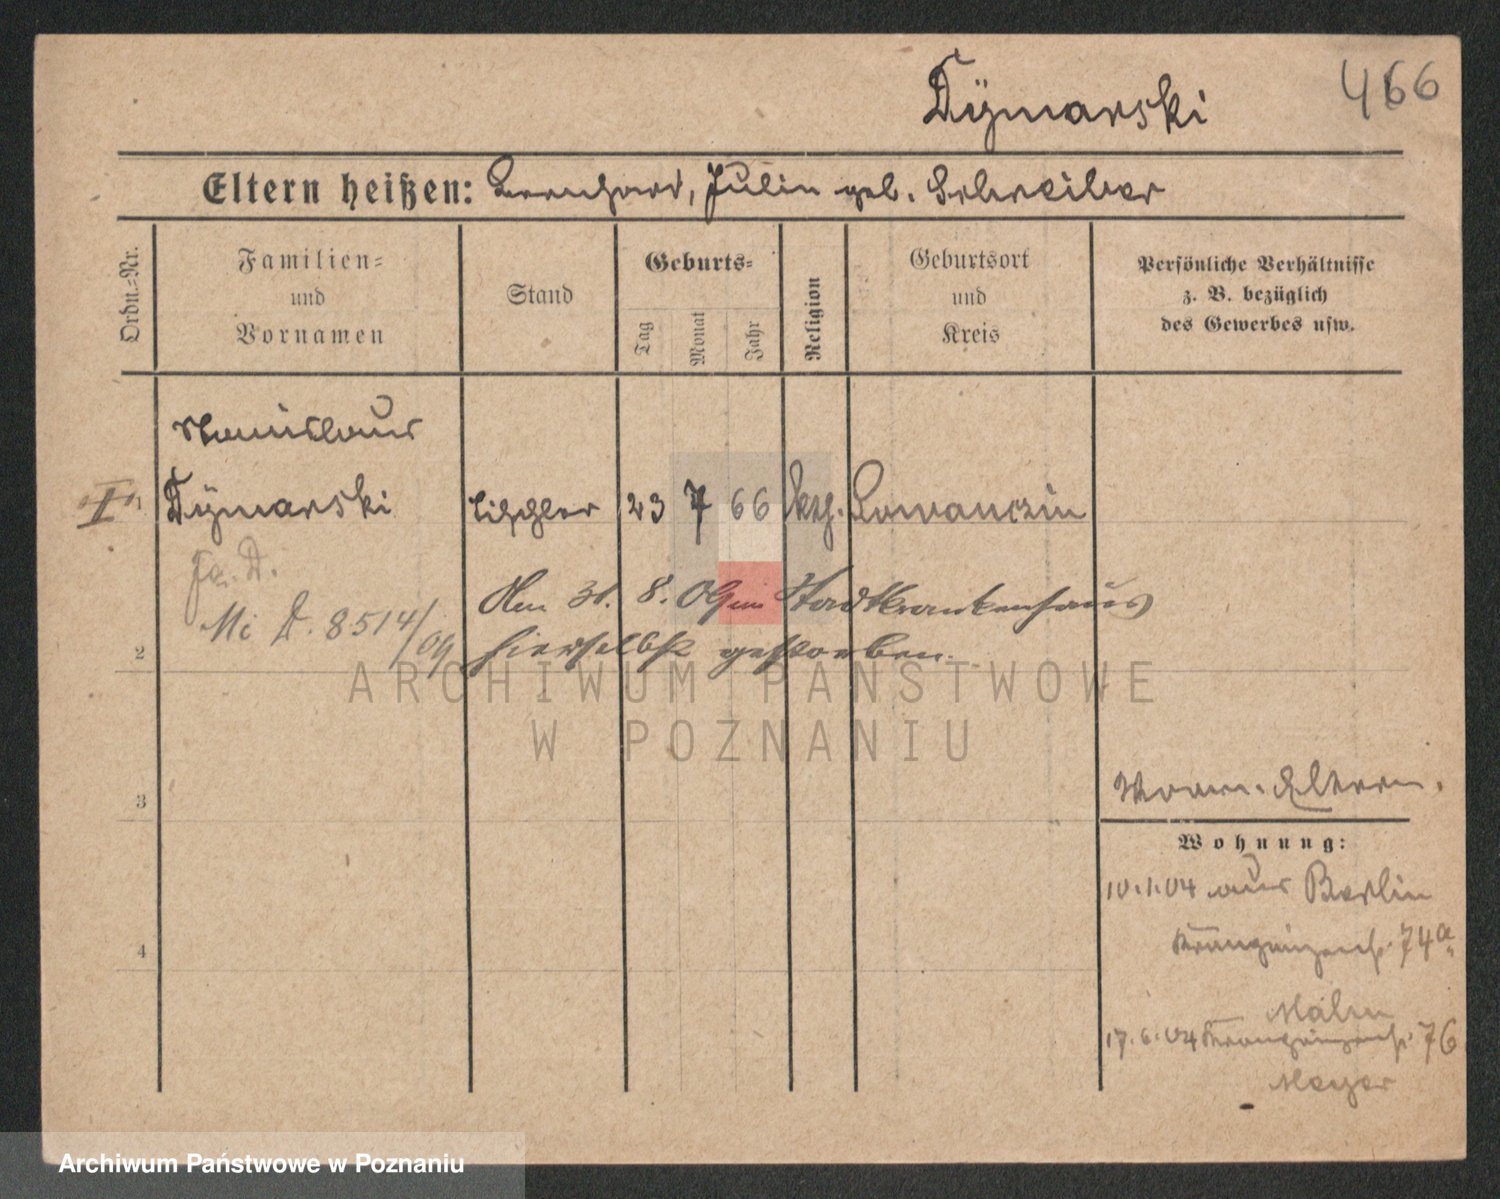 Dÿmarski
466
Eltern heißen: Bernhard, Julie geb. Schreiber
Ordn.=Nr.
Familien=
und
Vornamen
Stand
Geburts=
Tag
Monat
Jahr
Religion
Geburtsort
und
Kreis
Persönliche Verhältnisse
z. B. bezüglich
des Gewerbes usw.
Stanislaus
1 Dÿmarski Tischler 23 7 66 kth.
Mi D. 8514/09
Am 31. 8. 09 im Stadtkrankenhaus
hierselbst gestorben.
2
ARCHIWUM PAŃSTWOWE
W POZNANIU
3
Eltern.
Wohnung:
10.1.04 aus Berlin
74a
4
17.6.04 76
Meyer
Archiwum Państwowe w Poznaniu